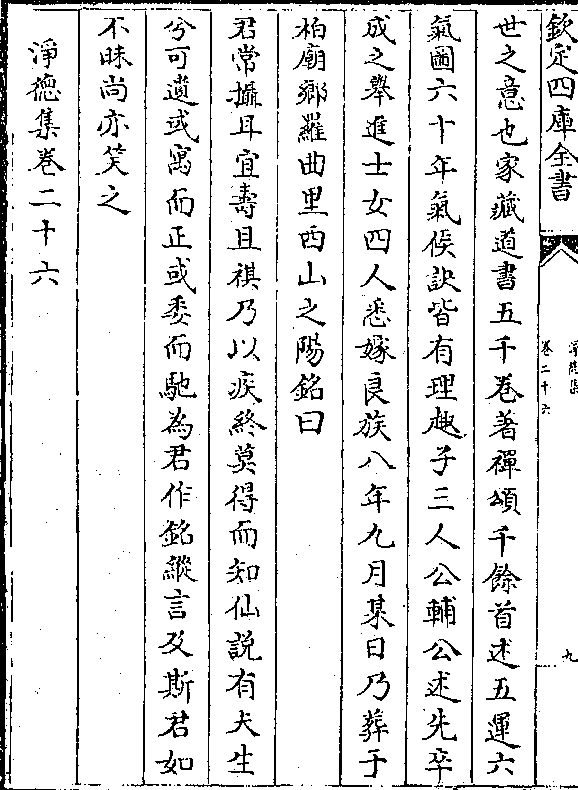 欽定四庫全書
淨德集
卷二十六
九
世之意也家藏道書五千卷著禪頌千餘首述五運六
氣圖六十年氣候訣皆有理趣子三人公輔公述先卒
成之舉進士女四人悉嫁良族八年九月某日乃葬于
柏廟鄉羅曲里西山之陽銘曰
君常攝耳宜壽且祺乃以疾終莫得而知仙說有大生
兮可遺或寓而正或委而馳為君作銘縱言及斯君如
不昧尚亦笑之
淨德集卷二十六